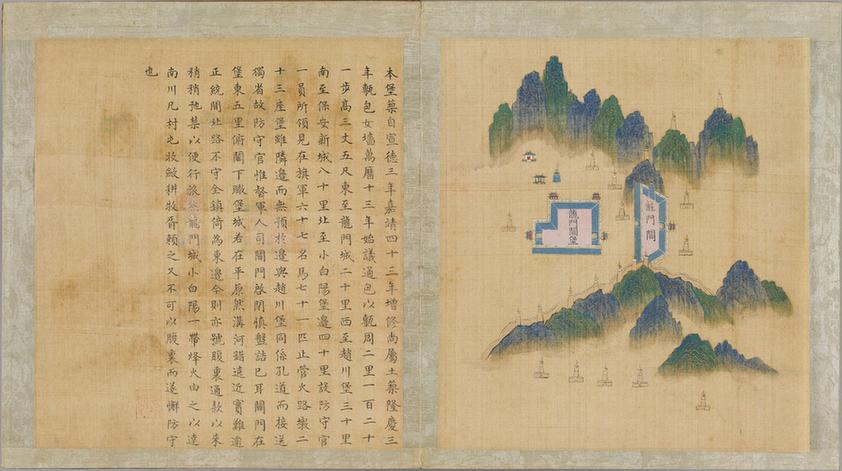 本堡築自宣德三年嘉靖四十三年增修尚屬土築隆慶三
年甎包女墻萬曆十三年始議通包以甎周二里一百二十
一步高三丈五尺東至龍門城二十里西至趙川堡三十里
南至保安新城八十里北至小白陽堡邊四十里設防守官
一員所領見在旗軍六十七名馬七十一匹止管火路墩二
十三座堡雖隣邊而無預於邊與趙川堡同係孔道而接送
獨省故防守官惟督軍人司關門啟閉慎盤詰已耳關門在
堡東五里俯關下瞰堡城若在平原然溝河錯遶近實難通
正統間北路不守全鎮倚為東邊今則亦號腹裏通款以來
稍稍弛禁以便行旅龍門城小白陽一帶烽火由之以達
南川凡村屯牧畝耕牧胥賴之又不可以腹裏而遂懈防守
也
龍門關
龍門關堡